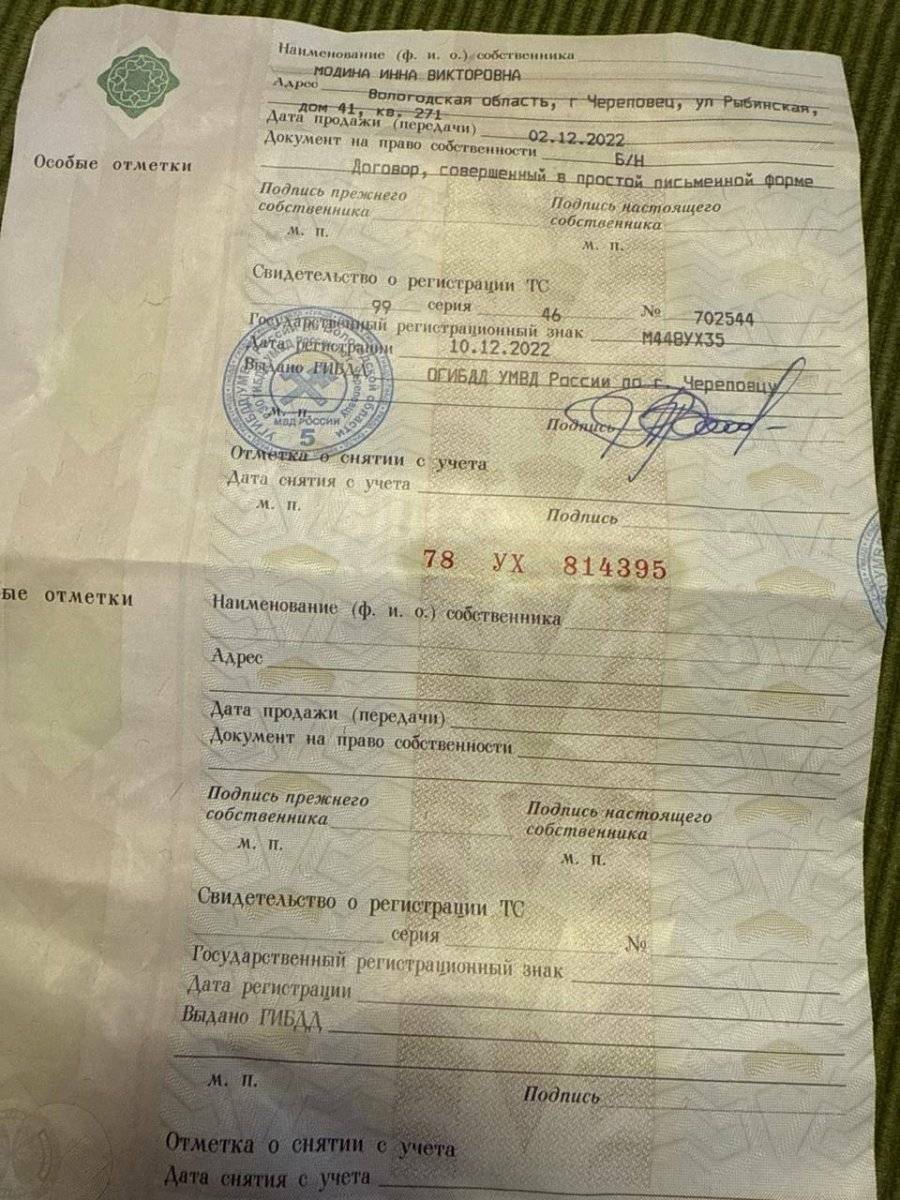 Наименование (ф. и. о.) собственника
МОДИНА ИННА ВИКТОРОВНА
Адрес Вологодская область, г Череповец, ул Рыбинская,
дом 41, кв. 271
Дата продажи (передачи) 02.12.2022
Документ на право собственности Б/Н
Особые отметки
Договор, совершенный в простой письменной форме
Подпись прежнего собственника
Подпись настоящего собственника
м. п.
м. п.
Свидетельство о регистрации ТС
99 серия 46 № 702544
Государственный регистрационный знак М448УХ35
Дата регистрации 10.12.2022
Выдано ГИБДД ОГИБДД УМВД России по г. Череповцу
м. п.
МВД РОССИИ
5
Подпись
Отметка о снятии с учета
Дата снятия с учета
м. п.
Подпись
78 УХ 814395
ые отметки
Наименование (ф. и. о.) собственника
Адрес
Дата продажи (передачи)
Документ на право собственности
Подпись прежнего собственника
Подпись настоящего собственника
м. п.
м. п.
Свидетельство о регистрации ТС
серия №
Государственный регистрационный знак
Дата регистрации
Выдано ГИБДД
м. п.
Подпись
Отметка о снятии с учета
Дата снятия с учета